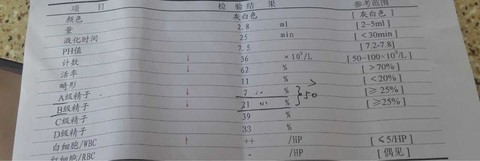 项 目 检 验 结 果 参考范围
颜色 灰白色 [ 灰白色 ]
量 2.8 ml [ 2-5ml ]
液化时间 25 min [ <30min ]
PH值 7.5 [ 7.2-7.8]
计数 ↓ 36 ×10⁹/L [ 50-100×10⁹/L ]
活率 ↓ 62 % [ >70% ]
畸形 11 % [ <20% ]
A级精子 ↓ 7 % [ ≥ 25% ]
B级精子 ↓ 21 % } 50 [ ≥25% ]
C级精子 39 %
D级精子 33 %
白细胞/WBC ↑ ++ /HP [ ≤5/HP ]
红细胞/RBC - /HP [ 偶见 ]